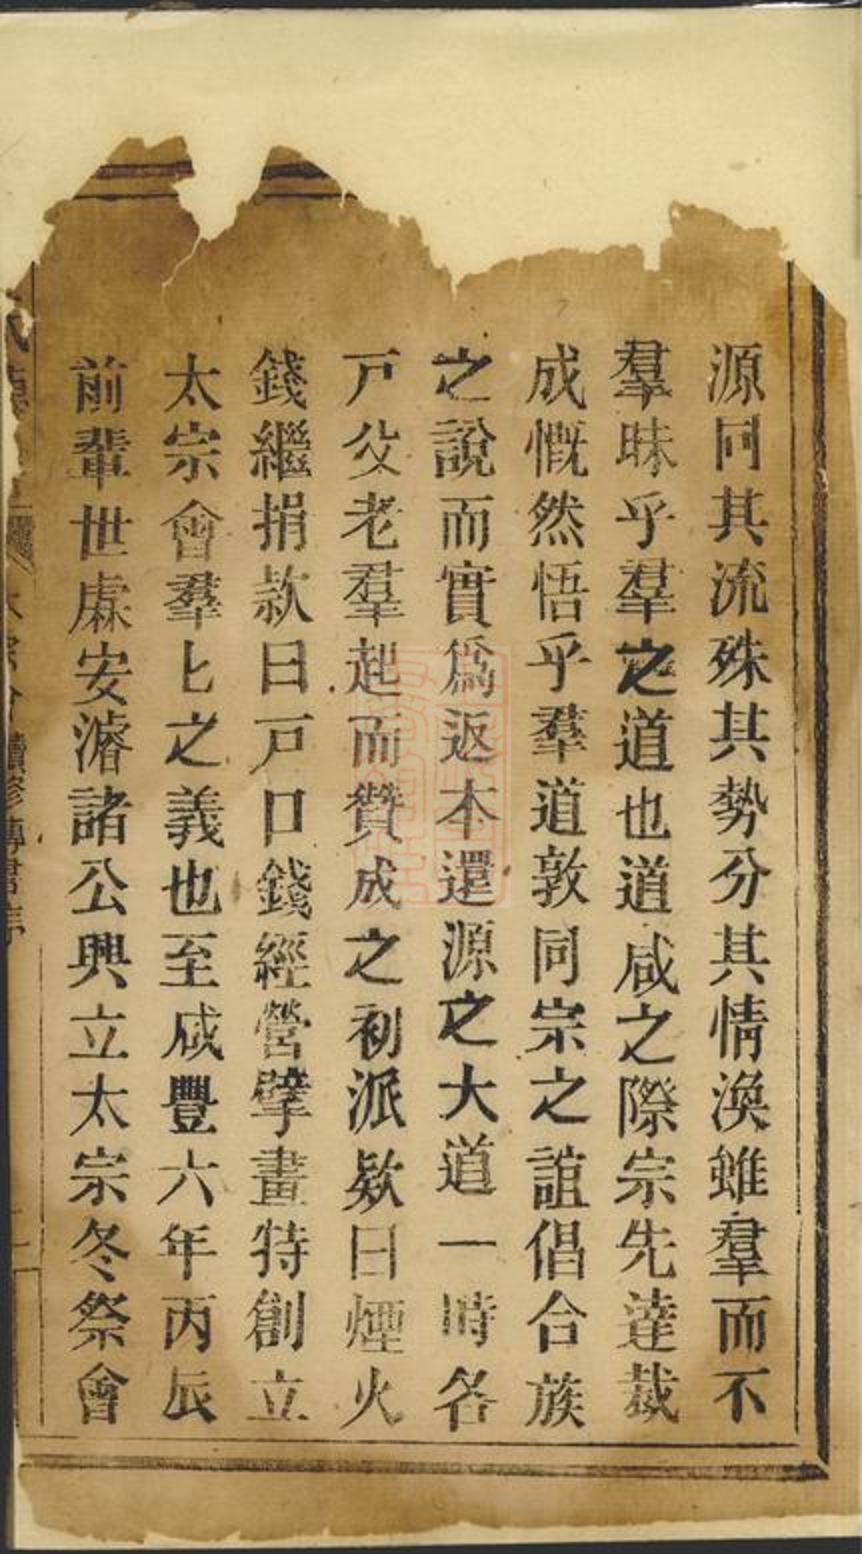 源同其流殊其勢分其情渙雖羣而不
羣昧乎羣之道也道咸之際宗先達裁
成慨然悟乎羣道敦同宗之誼倡合族
之說而實爲返本還源之大道一時各
戶父老羣起而贊成之初派欵曰煙火
錢繼捐款曰戶口錢經營擘畫特創立
太宗會羣匕之義也至咸豐六年丙辰
前輩世處安濬諸公興立太宗冬祭會
續修譜書序